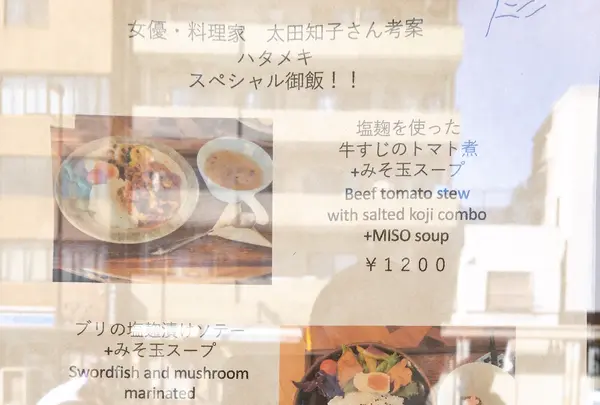 女優・料理家 太田知子さん考案
ハタメキ
スペシャル御飯！！
塩麹を使った
牛すじのトマト煮
+みそ玉スープ
Beef tomato stew
with salted koji combo
+MISO soup
￥１２００
ブリの塩麹漬けソテー
+みそ玉スープ
Swordfish and mushroom
marinated